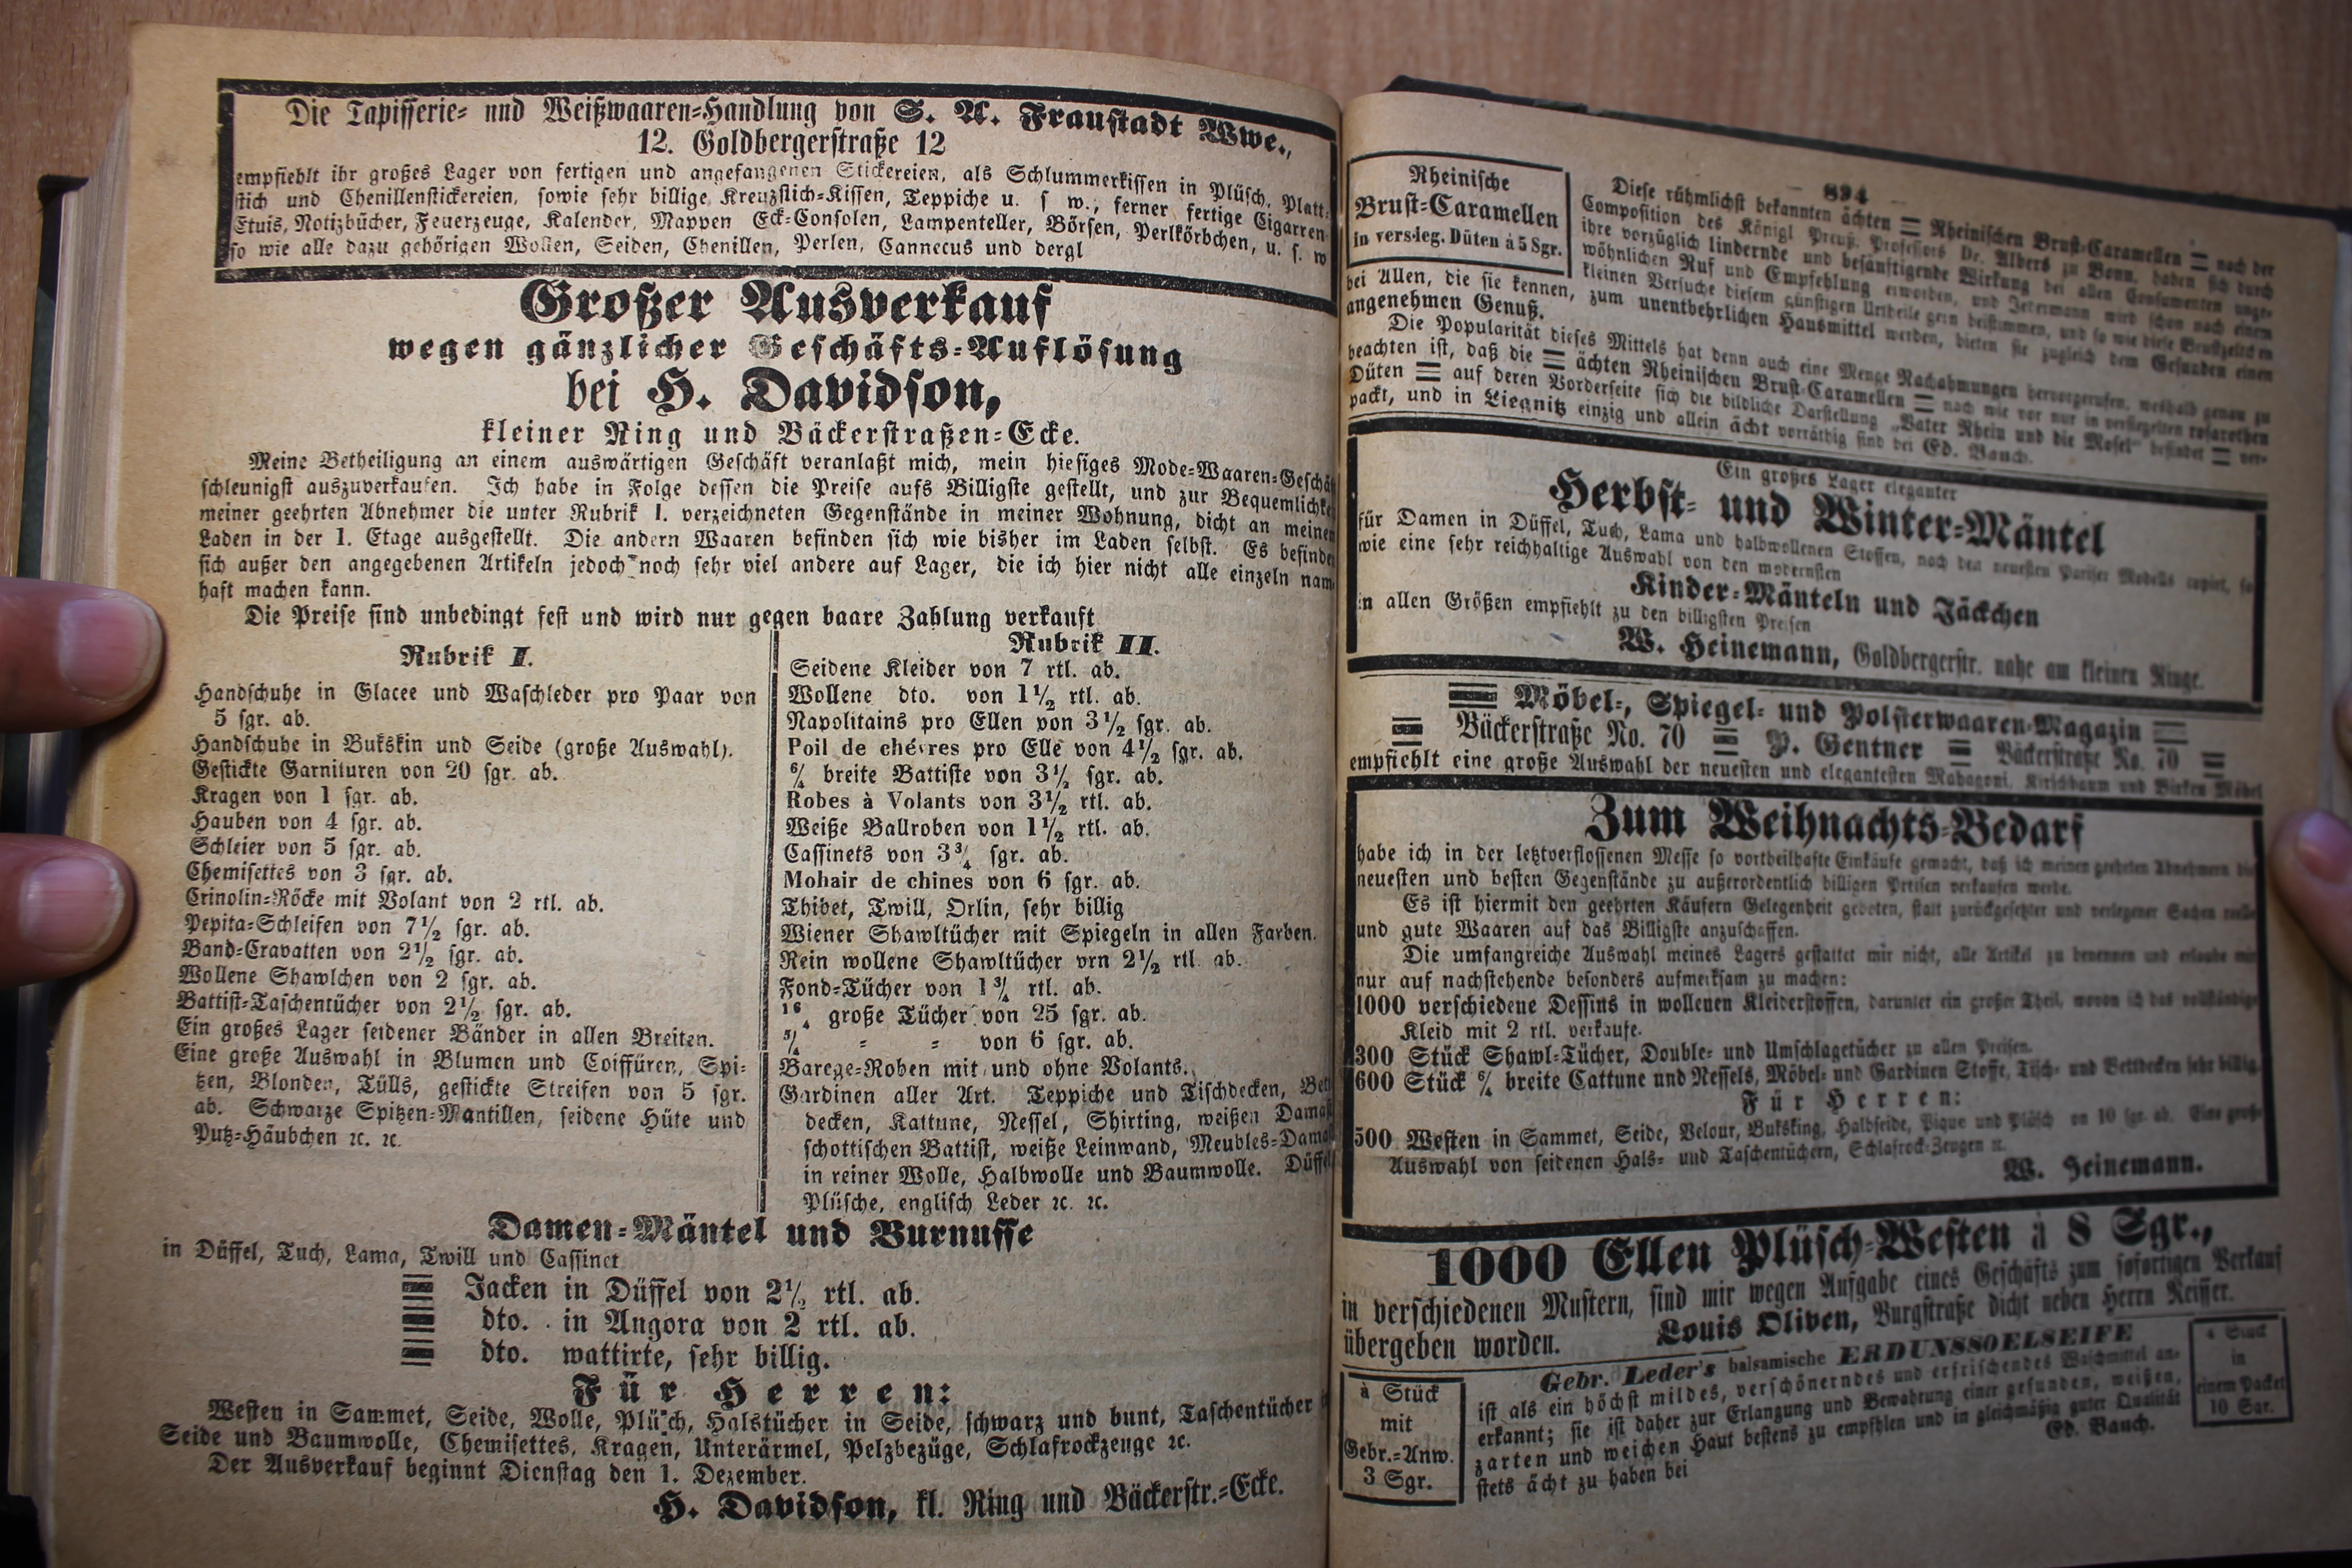 Die Tapisserie- und Weißwaaren-Handlung von S. A. Fraustadt Wwe.,
12. Goldbergerstraße 12
empfiehlt ihr großes Lager von fertigen und angefangenen Stickereien, als Schlummerkissen in Plüsch, Platt-
stich und Chenillenstickereien, sowie sehr billige Kreuzstich-Kissen, Teppiche u. s w., ferner fertige Cigarren-
Etuis, Notizbücher, Feuerzeuge, Kalender, Mappen Eck-Consolen, Lampenteller, Börsen, Perlkörbchen, u. s. w
so wie alle dazu gehörigen Wollen, Seiden, Chenillen, Perlen, Cannecus und dergl
Großer Ausverkauf
wegen gänzlicher Geschäfts-Auflösung
bei H. Davidson,
kleiner Ring und Bäckerstraßen-Ecke.
Meine Betheiligung an einem auswärtigen Geschäft veranlaßt mich, mein hiesiges Mode-Waaren-Geschäf
schleunigst auszuverkaufen. Ich habe in Folge dessen die Preise aufs Billigste gestellt, und zur Bequemlichke
meiner geehrten Abnehmer die unter Rubrik I. verzeichneten Gegenstände in meiner Wohnung, dicht an meinen
Laden in der 1. Etage ausgestellt. Die andern Waaren befinden sich wie bisher im Laden selbst. Es befinde
sich außer den angegebenen Artikeln jedoch noch sehr viel andere auf Lager, die ich hier nicht alle einzeln nam
haft machen kann.
Die Preise sind unbedingt fest und wird nur gegen baare Zahlung verkauft
Rubrik I.
Handschuhe in Glacee und Waschleder pro Paar von
5 sgr. ab.
Handschuhe in Bukskin und Seide (große Auswahl).
Gestickte Garnituren von 20 sgr. ab.
Kragen von 1 sgr. ab.
Hauben von 4 sgr. ab.
Schleier von 5 sgr. ab.
Chemisettes von 3 sgr. ab.
Crinolin-Röcke mit Volant von 2 rtl. ab.
Pepita-Schleifen von 7½ sgr. ab.
Band-Cravatten von 2½ sgr. ab.
Wollene Shawlchen von 2 sgr. ab.
Battist-Taschentücher von 2½ sgr. ab.
Ein großes Lager seidener Bänder in allen Breiten.
Eine große Auswahl in Blumen und Coiffüren, Spi-
tzen, Blonden, Tülls, gestickte Streifen von 5 sgr.
ab. Schwarze Spitzen-Mantillen, seidene Hüte und
Putz-Häubchen ꝛc. ꝛc.
Rubrik II.
Seidene Kleider von 7 rtl. ab.
Wollene dto. von 1½ rtl. ab.
Napolitains pro Ellen von 3½ sgr. ab.
Poil de chévres pro Elle von 4½ sgr. ab.
6/4 breite Battiste von 3½ sgr. ab.
Robes à Volants von 3½ rtl. ab.
Weiße Ballroben von 1½ rtl. ab.
Cassinets von 3¾ sgr. ab.
Mohair de chines von 6 sgr. ab.
Thibet, Twill, Orlin, sehr billig
Wiener Shawltücher mit Spiegeln in allen Farben.
Rein wollene Shawltücher vrn 2½ rtl. ab.
Fond-Tücher von 1¾ rtl. ab.
16/4 große Tücher von 25 sgr. ab.
5/4 = = von 6 sgr. ab.
Barege-Roben mit und ohne Volants.
Gardinen aller Art. Teppiche und Tischdecken, Bett
decken, Kattune, Nessel, Shirting, weißen Damas
schottischen Battist, weiße Leinwand, Meubles-Dama
in reiner Wolle, Halbwolle und Baumwolle. Düffel
Plüsche, englisch Leder ꝛc. ꝛc.
Damen-Mäntel und Burnusse
in Düffel, Tuch, Lama, Twill und Cassinet
Jacken in Düffel von 2½ rtl. ab.
dto. in Angora von 2 rtl. ab.
dto. wattirte, sehr billig.
Für Herren:
Westen in Sammet, Seide, Wolle, Plüsch, Halstücher in Seide, schwarz und bunt, Taschentücher
Seide und Baumwolle, Chemisettes, Kragen, Unterärmel, Pelzbezüge, Schlafrockzeuge ꝛc.
Der Ausverkauf beginnt Dienstag den 1. Dezember.
H. Davidson, kl. Ring und Bäckerstr.-Ecke.
— 894 —
Rheinische
Brust-Caramellen
in versieg. Düten à 5 Sgr.
Diese rühmlichst bekannten ächten Rheinischen Brust-Caramellen nach der
Composition des Königl Preuß. Professors Dr. Albers zu Bonn, haben sich durch
ihre vorzüglich lindernde und besänftigende Wirkung bei allen Consumenten unge-
wöhnlichen Ruf und Empfehlung erworben, und Jedermann wird schon nach einem
kleinen Versuche diesem günstigen Urtheile gern beistimmen, und so wie diese Brustzeltchen
bei Allen, die sie kennen, zum unentbehrlichen Hausmittel werden, bieten sie zugleich dem Gesunden einen
angenehmen Genuß.
Die Popularität dieses Mittels hat denn auch eine Menge Nachahmungen hervorgerufen, weshalb genau zu
beachten ist, daß die ächten Rheinischen Brust-Caramellen nach wie vor nur in versiegelten rosarothen
Düten auf deren Vorderseite sich die bildliche Darstellung „Vater Rhein und die Mosel" befindet ver-
packt, und in Liegnitz einzig und allein ächt vorräthig sind bei Ed. Bauch.
Ein großes Lager eleganter
Herbst- und Winter-Mäntel
für Damen in Düffel, Tuch, Lama und halbwollenen Stoffen, nach den neuesten Pariser Modells copirt, so
wie eine sehr reichhaltige Auswahl von den modernsten
Kinder-Mänteln und Jäckchen
in allen Größen empfiehlt zu den billigsten Preisen
W. Heinemann, Goldbergerstr. nahe am kleinen Ringe.
Möbel-, Spiegel- und Polsterwaaren-Magazin
Bäckerstraße No. 70 P. Gentner Bäckerstraße No. 70
empfiehlt eine große Auswahl der neuesten und elegantesten Mahagoni, Kirschbaum und Birken Möbel
Zum Weihnachts-Bedarf
habe ich in der letztverflossenen Messe so vortheilhafte Einkäufe gemacht, daß ich meinen geehrten Abnehmern die
neuesten und besten Gegenstände zu außerordentlich billigen Preisen verkaufen werde.
Es ist hiermit den geehrten Käufern Gelegenheit geboten, statt zurückgesetzter und verlegener Sachen reelle
und gute Waaren auf das Billigste anzuschaffen.
Die umfangreiche Auswahl meines Lagers gestattet mir nicht, alle Artikel zu benennen und erlaube mir
nur auf nachstehende besonders aufmerksam zu machen:
1000 verschiedene Dessins in wollenen Kleiderstoffen, darunter ein großer Theil, wovon ich das vollständige
Kleid mit 2 rtl. verkaufe.
300 Stück Shawl-Tücher, Double- und Umschlagetücher zu allen Preisen.
600 Stück 6/4 breite Cattune und Nessels, Möbel- und Gardinen Stoffe, Tisch- und Bettdecken sehr billig.
Für Herren:
500 Westen in Sammet, Seide, Velour, Buksking, Halbseide, Pique und Plüsch von 10 sgr. ab. Eine große
Auswahl von seidenen Hals- und Taschentüchern, Schlafrock-Zeugen ꝛc.
W. Heinemann.
1000 Ellen Plüsch-Westen à 8 Sgr.,
in verschiedenen Mustern, sind mir wegen Aufgabe eines Geschäfts zum sofortigen Verkauf
übergeben worden. Louis Oliven, Burgstraße dicht neben Herrn Reisser.
à Stück
mit
Gebr.-Anw.
3 Sgr.
Gebr. Leder's balsamische ERDUNSSOELSEIFE
ist als ein höchst mildes, verschönerndes und erfrischendes Waschmittel an-
erkannt; sie ist daher zur Erlangung und Bewahrung einer gesunden, weißen,
zarten und weichen Haut bestens zu empfehlen und in gleichmäßig guter Qualität
stets ächt zu haben bei Ed. Bauch.
4 Stück
in
einem Packet
10 Sgr.